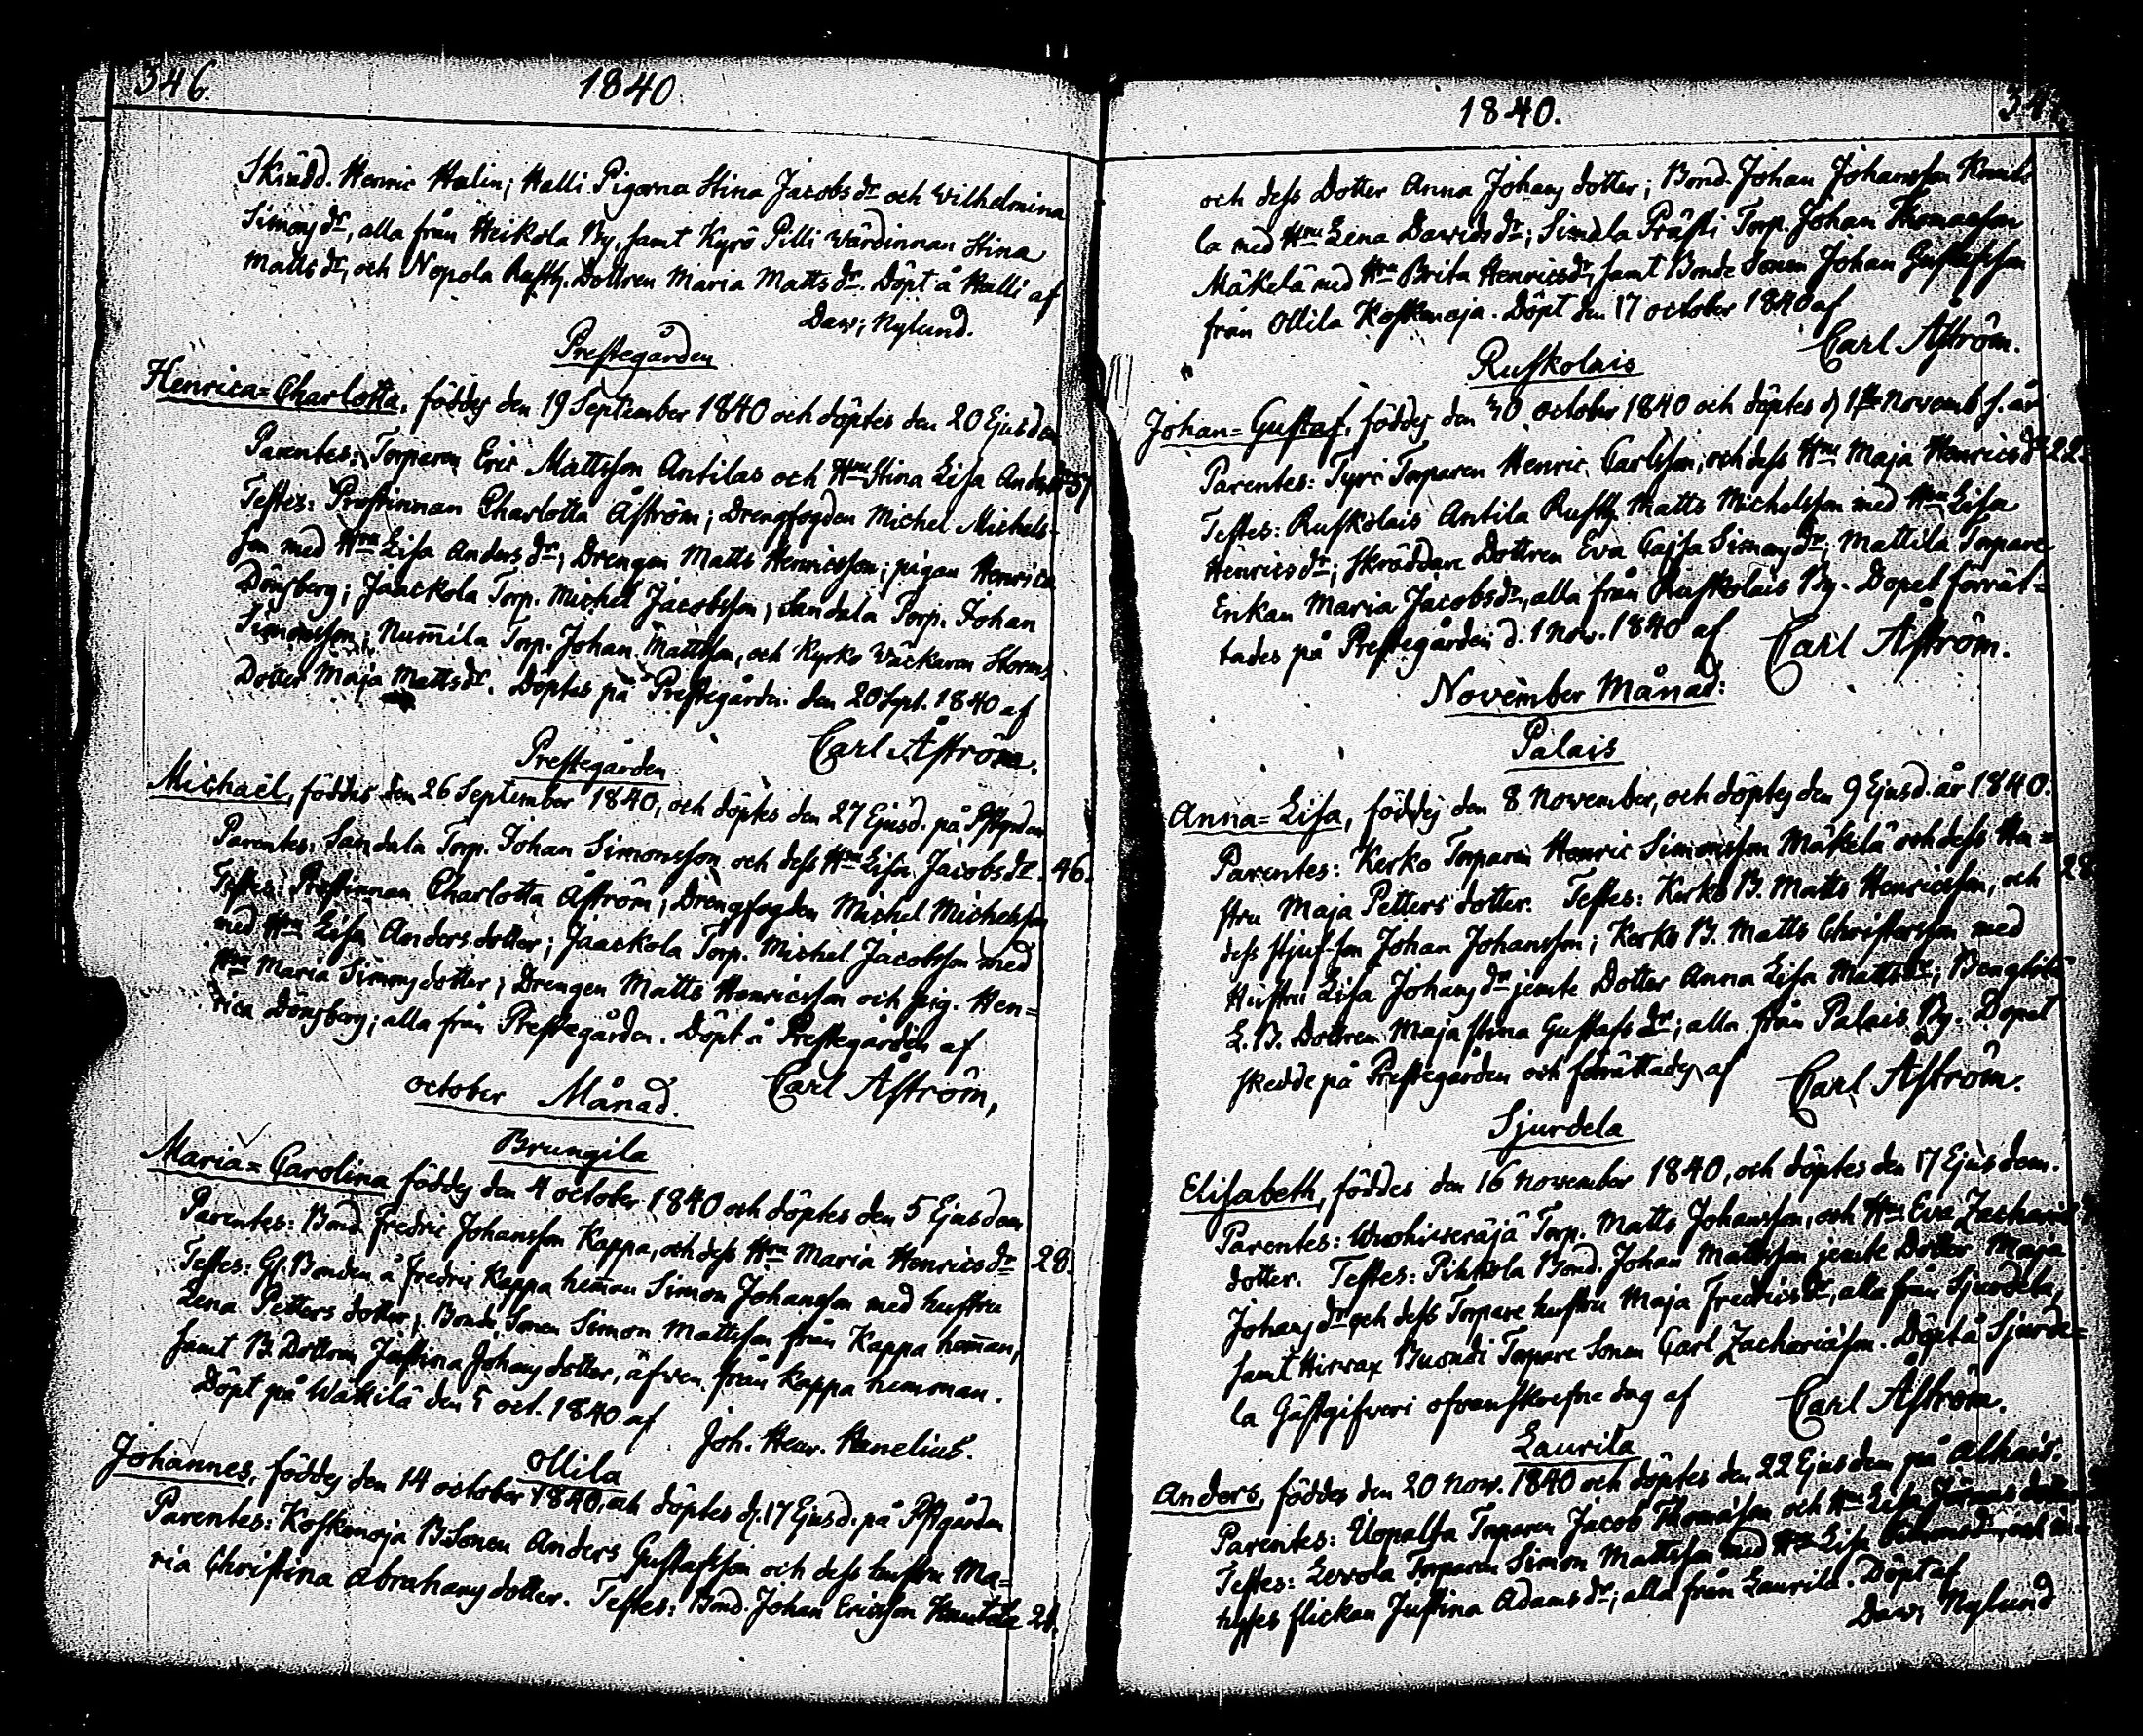 346.
1840
Skrädd. Henric Malin; Halli Pigorna Stina Jacobs dr och Wilhelmina
Simons dr, alla från Heikola By, samt Kyrö Pilli Wärdinnan Stina
Matts dr, och Nopola Rusth. Dottren Maria Matts dr. Döpt å Halli af
Daw; Nylund.
Prestegården
Henrica=Charlotta, föddes den 19 September 1840 och döptes den 20 Ejusdem
Parentes: Torparen Eric Mattsson Antilas och Hru Stina Lisa Anders dr
Testes: Prostinnan Charlotta Åström; Drengfogden Michel Michels-
son med Hru Lisa Anders dr; Drengen Matts Henricsson; pigan Henrica
Dönsberg; Jaackola Torp. Michel Jacobsson; Sandula Torp. Johan
Simonsson; Num̄ila Torp. Johan Mattsson, och Kyrko Wäckaren Storms
Dotter Maja Matts dr. Döptes på Prestegården den 20 Sept. 1840 af
Carl Åström.
Prestegården
Michaël, föddes den 26 September 1840, och döptes den 27 Ejusd. på Pstgrden
Parentes. Sandula Torp. Johan Simonsson och dess Hru Lisa Jacobs dr. 46.
Testes: Prostinnan Charlotta Åström; Drengfogden Michel Michelsson
med Hru Lisa Andersdotter; Jaackola Torp. Michel Jacobsson med
Hru Maria Simonsdotter; Drengen Matts Henricsson och pig. Hen=
rica Dönsberg; alla från Prestegården. Döpt å Prestegården af
Carl Åström,
October Månad.
Brungila
Maria=Carolina föddes den 4 october 1840 och döptes den 5 Ejusdem
Parentes: Bond. Fredric Johansson Kappa, och dess Hru Maria Henrics dr 28.
Testes: Gl. Bonden å Fredric Kappa hem̄an Simon Johansson med hustru
Lena Petters dotter; Bonde Sonen Simon Mattsson från Kappa hem̄an,
samt B. Dottren Justina Johans dotter, äfwen från Kappa hemman.
Döpt på Wattilä den 5 oct. 1840 af
Joh. Henr. Hanelius.
Ollila
Johannes, föddes den 14 october 1840, och döptes d. 17 Ejusd. på Pstgården
Parentes: Koskenoja B. Sonen Anders Gustafsson och dess hustru Ma=
ria Christina Abrahams dotter. Testes: Bond. Johan Ericsson Knutila 21.
1840.
och dess Dotter Anna Johans dotter; Bond. Johan Johansson
la med Hru Lena Dawids dr; Simula Prästi Torp. Johan Thomasson
Mäkelä med Hru Brita Henrics dr, samt Bonde Sonen Johan Gustafsson
från Ollila Koskenoja. Döpt den 17 october 1840 af
Carl Åström.
Ruskolais
Johan=Gustaf, föddes den 30 october 1840 och döptes d 1ste Novemb. s. år
Parentes: Tyri Torparen Henric Carlsson, och dess Hru Maja Henrics dr 22.
Testes: Ruskolais Antila Rusth. Matts Michelsson med Hru Lisa
Henrics dr; Skräddare Dottren Eva Cajsa Simons dr; Mattila Torpare
Enkan Maria Jacobs dr, alla från Ruskolais By. Dopet förrät=
tades på Prestegården d. 1 Nov. 1840 af
Carl Åström.
November Månad:
Palais
Anna=Lisa, föddes den 8 November, och döptes den 9 Ejusd. år 1840.
Parentes: Kerko Torparen Henric Simonsson Mäkelä och dess Hu=
stru Maja Petters dotter. Testes: Kerko B. Matts Henricsson, och 28
dess stjufson Johan Johansson; Kerko B. Matts Christersson med
Hustru Lisa Johans dr jemte Dotter Anna Lisa Matts dr;
L. B. Dottren Maja Stina Gustafs dr; alla från Palais By. Dopet
skedde på Prestegården och förrättades af
Carl Åström.
Sjurdela
Elisabeth, föddes den 16 November 1840, och döptes den 17 Ejusdem.
Parentes: Torp. Matts Johansson, och Hru Eva
dotter. Testes: Pihkola Bond. Johan Mattsson jemte Dotter Maja
Johans dr och dess Torpare hustru Maja Fredrics dr, alla från Sjurdela,
samt Hirwax Torpare Sonen Carl Zachariasson. Döpt å Sjurde=
la Gästgifweri ofvanskrefne dag af
Carl Åström.
Laurila
Anders, föddes den 20 Nov. 1840 och döptes den 22 Ejusdem på Alhais.
Parentes: Uopalla Torparen Jacob Thomasson och Hru Lisa
Testes: Lewola Torparen Simon Mattsson med Hru Lisa
hyses flickan Justina Adams dr; alla från Laurila. Döpt af
Daw; Nylund